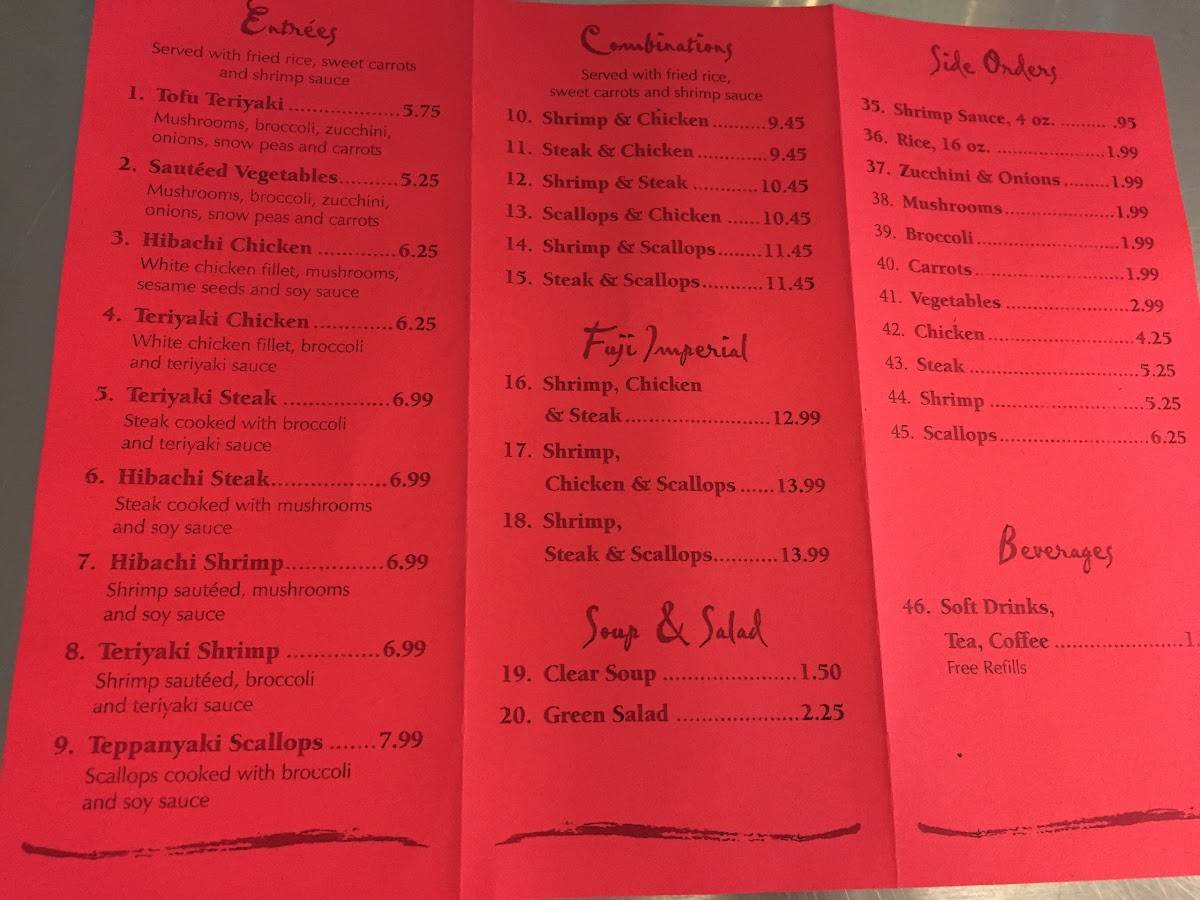 Entrées
Served with fried rice, sweet carrots
and shrimp sauce
1. Tofu Teriyaki ..................5.75
Mushrooms, broccoli, zucchini,
onions, snow peas and carrots
2. Sautéed Vegetables..........5.25
Mushrooms, broccoli, zucchini,
onions, snow peas and carrots
3. Hibachi Chicken .............6.25
White chicken fillet, mushrooms,
sesame seeds and soy sauce
4. Teriyaki Chicken .............6.25
White chicken fillet, broccoli
and teriyaki sauce
5. Teriyaki Steak .................6.99
Steak cooked with broccoli
and teriyaki sauce
6. Hibachi Steak..................6.99
Steak cooked with mushrooms
and soy sauce
7. Hibachi Shrimp...............6.99
Shrimp sautéed, mushrooms
and soy sauce
8. Teriyaki Shrimp ..............6.99
Shrimp sautéed, broccoli
and teriyaki sauce
9. Teppanyaki Scallops .......7.99
Scallops cooked with broccoli
and soy sauce
Combinations
Served with fried rice,
sweet carrots and shrimp sauce
10. Shrimp & Chicken..........9.45
11. Steak & Chicken ............9.45
12. Shrimp & Steak ...........10.45
13. Scallops & Chicken ......10.45
14. Shrimp & Scallops........11.45
15. Steak & Scallops...........11.45
Fuji Imperial
16. Shrimp, Chicken
& Steak........................12.99
17. Shrimp,
Chicken & Scallops ......13.99
18. Shrimp,
Steak & Scallops...........13.99
Soup & Salad
19. Clear Soup ......................1.50
20. Green Salad ....................2.25
Side Orders
35. Shrimp Sauce, 4 oz. ......... .95
36. Rice, 16 oz. ....................1.99
37. Zucchini & Onions .........1.99
38. Mushrooms.....................1.99
39. Broccoli..........................1.99
40. Carrots...........................1.99
41. Vegetables ......................2.99
42. Chicken..........................4.25
43. Steak ..............................5.25
44. Shrimp ...........................5.25
45. Scallops..........................6.25
Beverages
46. Soft Drinks,
Tea, Coffee ......................1.
Free Refills